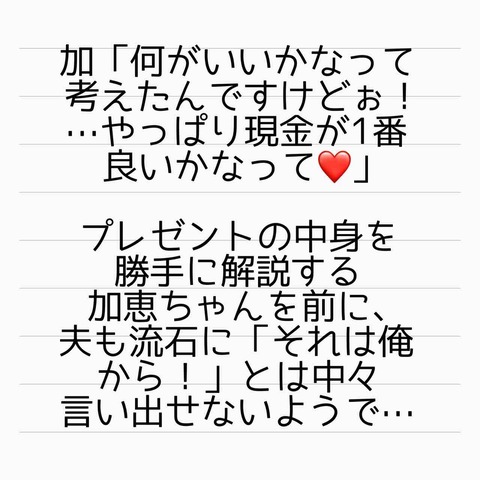 加「何がいいかなって
考えたんですけどぉ！
…やっぱり現金が1番
良いかなって❤️」
プレゼントの中身を
勝手に解説する
加恵ちゃんを前に、
夫も流石に「それは俺
から！」とは中々
言い出せないようで…